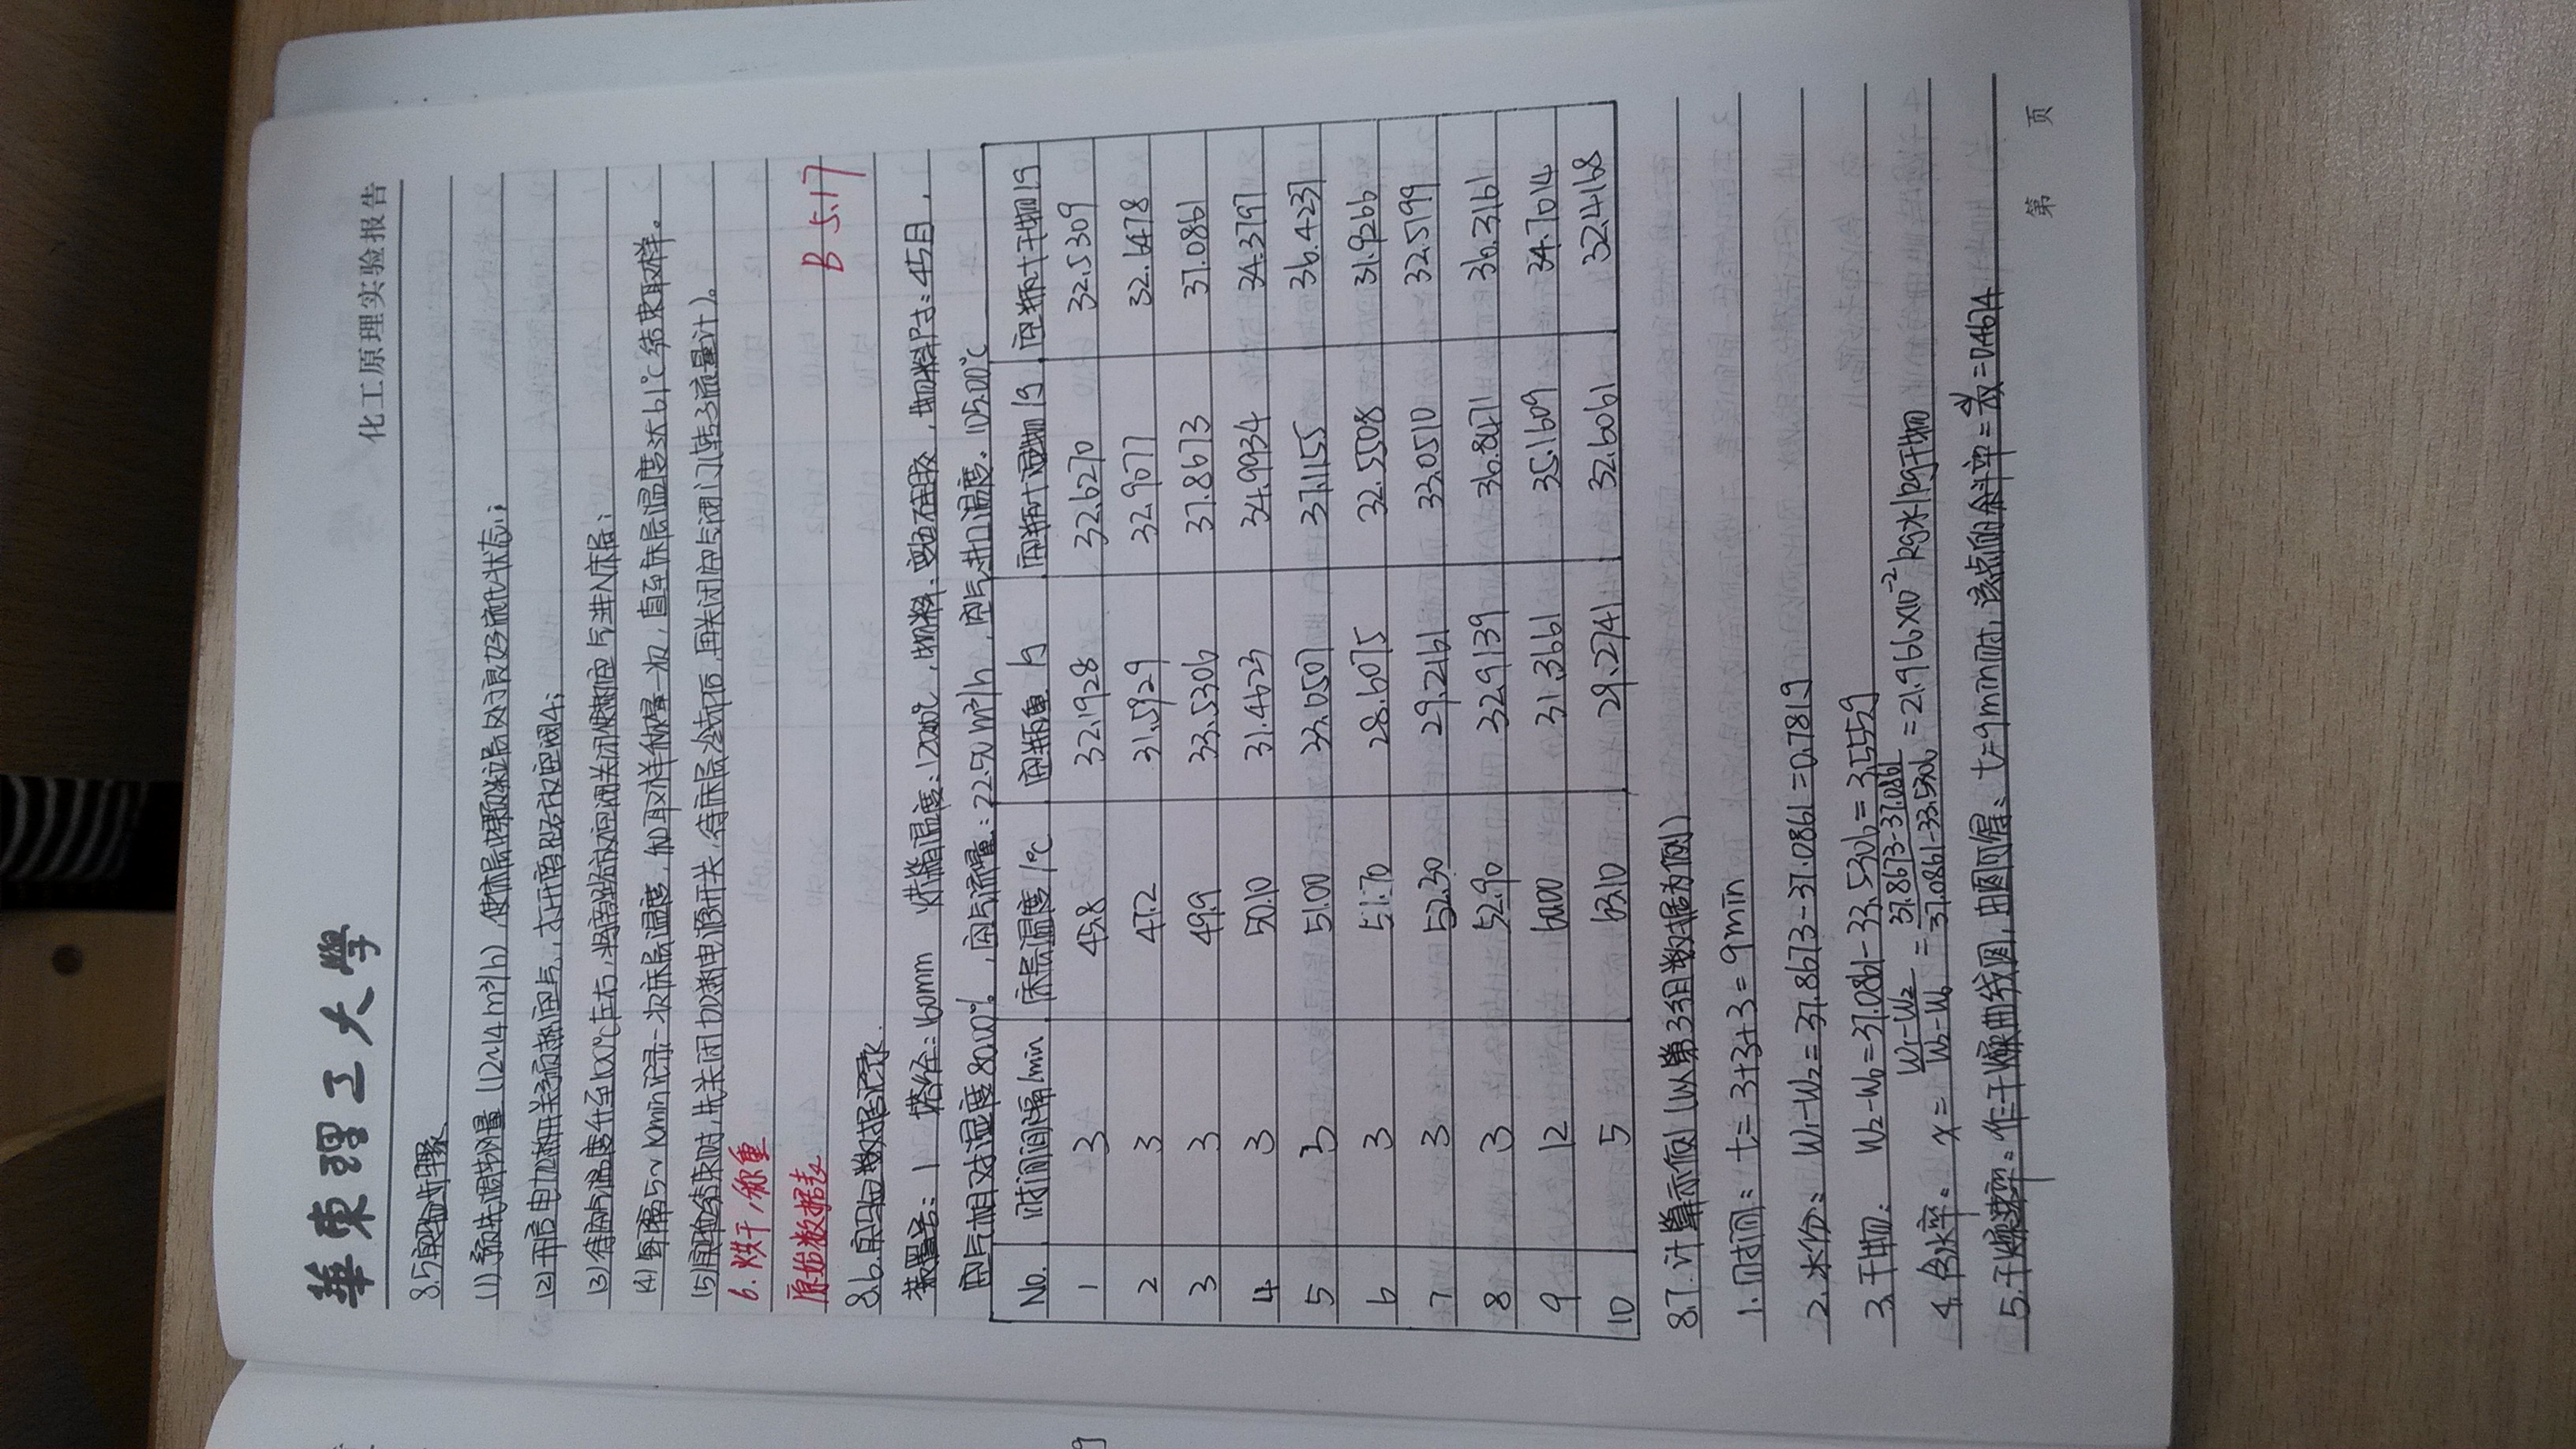 華東理工大學
化工原理实验报告
8.5实验步骤
(1)预先调节风量(12~14m³/h),使床层中颗粒层处于良好流化状态;
(2)开启电加热开关预热空气,打开旁路放空阀4;
(3)待空气温度升至100℃左右,将旁路放空阀关闭使热空气进入床层;
(4)每隔5~10min记录一次床层温度,和取样称量一次,直至床层温度达61℃结束取样。
(5)实验结束时,先关闭加热电源开关,待床层冷却后,再关闭空气阀门(转子流量计)。
6.烘干,称重
原始数据表
B 5.17
8.6.实验数据记录.
装置号:1 塔径:160mm 烘箱温度:120.00℃,物料:变色硅胶,物料尺寸:45目,
空气相对湿度80.00%,空气流量:22.50m³/h,空气进口温度:105.00℃
No. 时间间隔/min 床层温度/℃ 空瓶重/g 空瓶+湿物/g 空瓶+干物/g
1 3 45.8 32.1928 32.6270 32.5309
2 3 47.2 31.5929 32.9077 32.6478
3 3 49.9 33.5306 37.8673 37.0861
4 3 50.10 31.4623 34.9934 34.3797
5 3 51.00 33.0507 37.1155 36.4237
6 3 51.70 28.6075 32.5508 31.9266
7 3 52.30 29.2161 33.0510 32.5199
8 3 52.90 32.9139 36.8471 36.3161
9 12 60.00 31.3661 35.1609 34.7014
10 5 63.10 29.2741 32.6061 32.4168
8.7.计算示例(以第3组数据为例)
1.时间: t=3+3+3=9min
2.水份: W₁-W₂=37.8673-37.0861=0.781g
3.干物: W₂-W₀=37.0861-33.5306=3.555g
4.含水率: x=(W₁-W₂)/(W₂-W₀)=(37.8673-37.0861)/(37.0861-33.5306)=21.966×10⁻² kg水/kg干物
5.干燥速率:作干燥曲线图,由图可得:t=9min时,该点的斜率= =0.4674
第 页